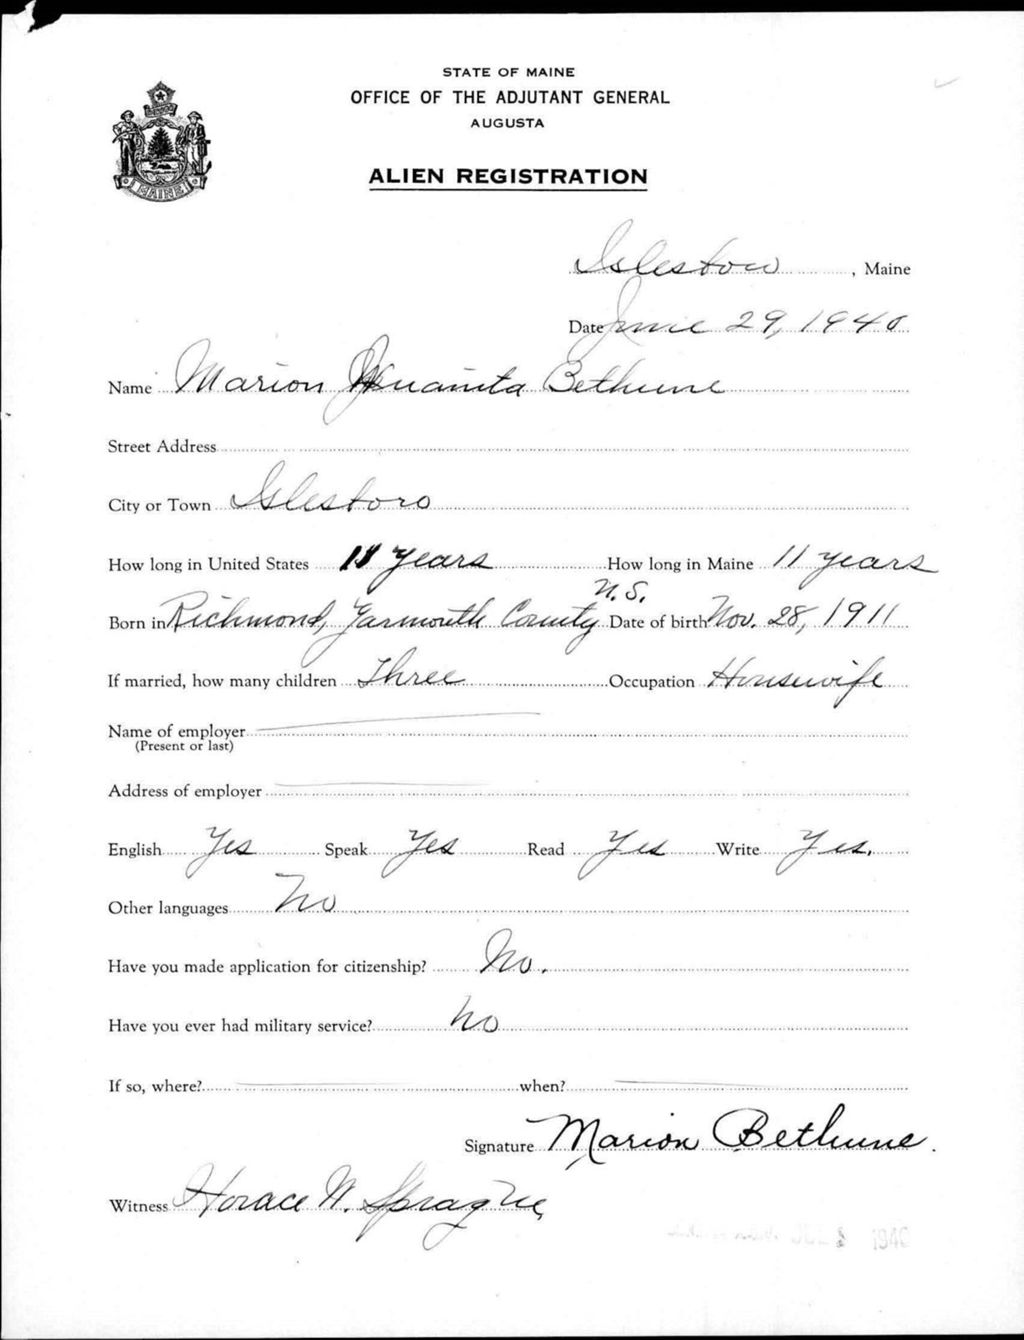 STATE OF MAINE
OFFICE OF THE ADJUTANT GENERAL
AUGUSTA
ALIEN REGISTRATION
MAINE
Islesboro, Maine
Date June 29, 1940
Name Marion Juanita Bethune
Street Address
City or Town Islesboro
How long in United States 11 years How long in Maine 11 years
Born in Richmond, Yarmouth County N.S. Date of birth Nov. 28, 1911
If married, how many children Three Occupation Housewife
Name of employer
(Present or last)
Address of employer
English Yes Speak Yes Read Yes Write Yes.
Other languages No
Have you made application for citizenship? No.
Have you ever had military service? No
If so, where? when?
Signature Marion Bethune.
Witness Horace N. Sprague
1940